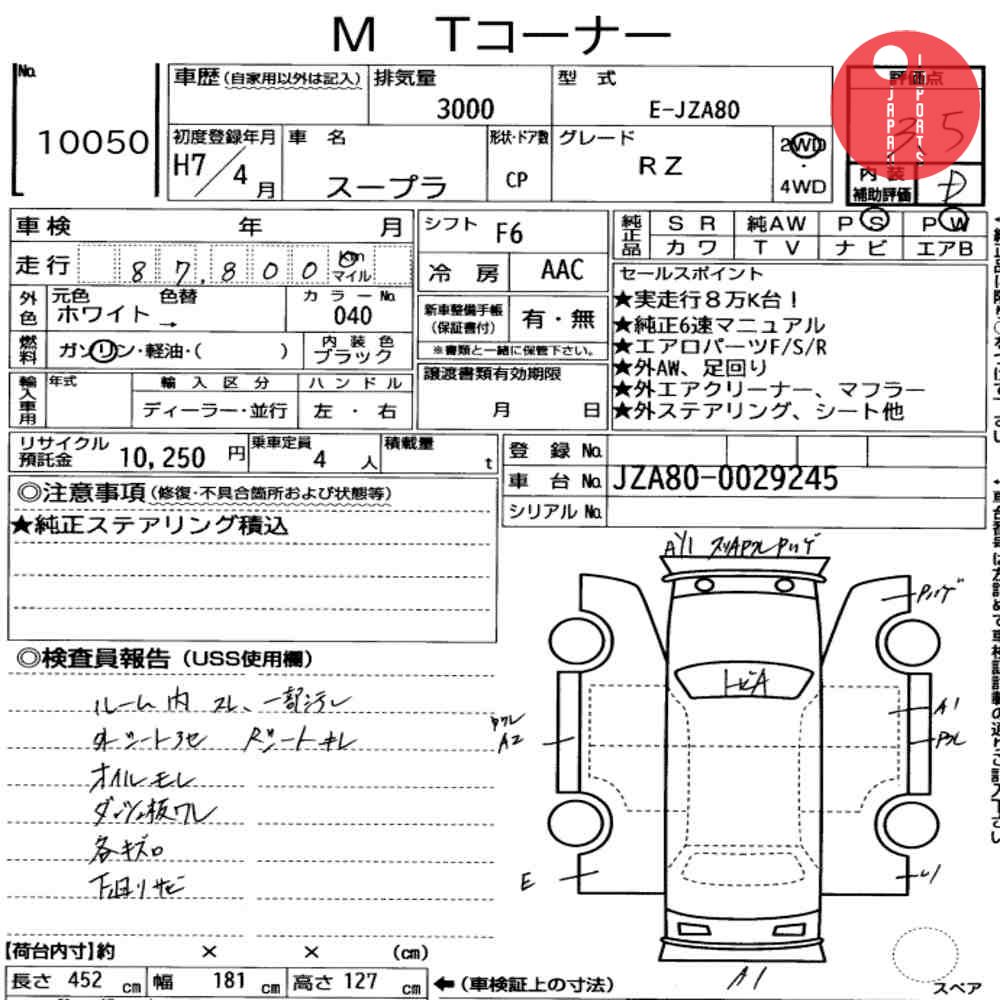 M Tコーナー
No.
10050
車歴(自家用以外は記入)
排気量
3000
型 式
E-JZA80
評価点
3.5
JAPAN
IMPORTS
初度登録年月
H7/4月
車 名
スープラ
形状・ドア数
CP
グレード
RZ
2WD
・
4WD
内 装
補助評価
D
車検 年 月
走行 87,800 km マイル
外色
元色
ホワイト
色替
→
カラーNo.
040
燃料
ガソリン・軽油・( )
内装色
ブラック
輸入車用
年式
輸入区分
ディーラー・並行
ハンドル
左・右
シフト F6
冷 房 AAC
新車整備手帳
(保証書付)
有・無
※書類と一緒に保管下さい。
譲渡書類有効期限
月 日
純正品
SR 純AW PS PW
カワ TV ナビ エアB
セールスポイント
★実走行8万K台!
★純正6速マニュアル
★エアロパーツF/S/R
★外AW、足回り
★外エアクリーナー、マフラー
★外ステアリング、シート他
リサイクル
預託金
10,250 円
乗車定員
4 人
積載量
t
登 録 No.
車 台 No. JZA80-0029245
シリアル No.
◎注意事項(修復・不具合箇所および状態等)
★純正ステアリング積込
◎検査員報告(USS使用欄)
ルーム内 スレ、一部汚レ
オイルモレ
ダッシュ板ワレ
各キズ
下回リサビ
トビA
A1
A2
E
A1
【荷台内寸】約 × × (cm)
長さ 452 cm 幅 181 cm 高さ 127 cm
←(車検証上の寸法)
スペア